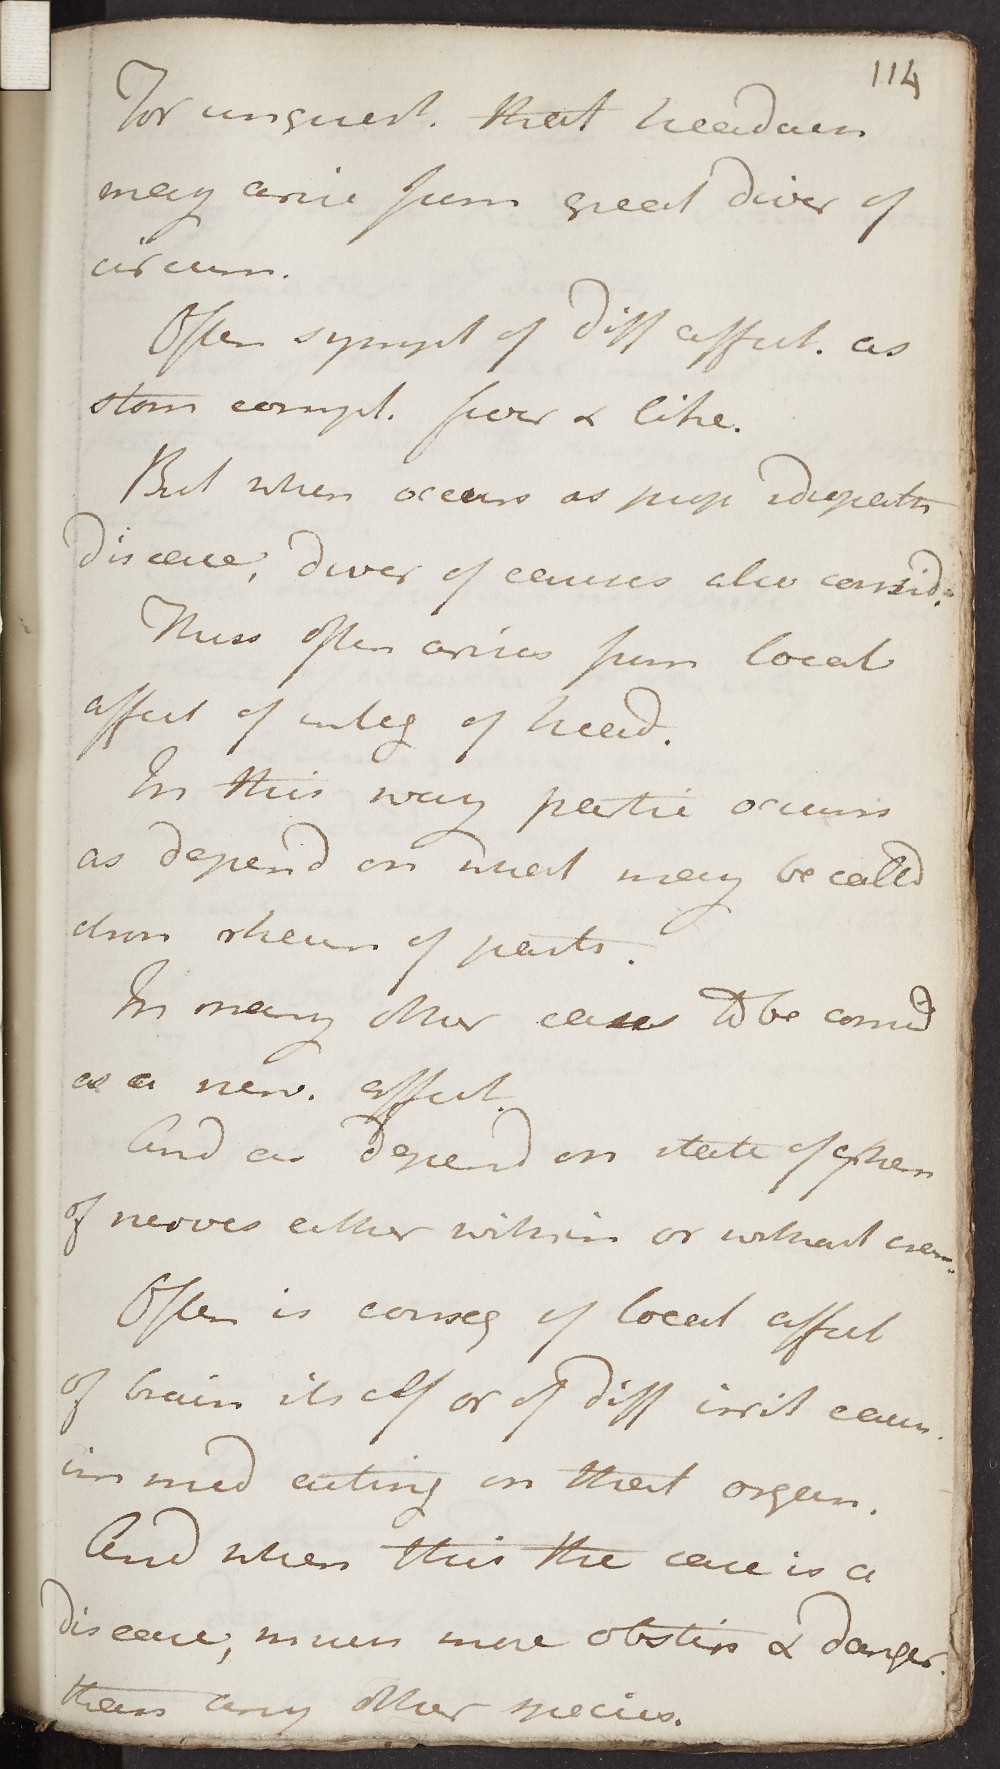 114
For unquest. that headach
may arise from great diver of
circum.
Often sympt of diff affect. as
stom compl. fever & like.
But when occurs as prop idiopath
disease, diver of causes also consid.
Thus often arises from local
affect of integ of head.
In this way partic occurs
as depend on what may be called
chron rheum of parts.
In many other cases to be consid
as a nerv. affect.
And as depend on state of
of nerves either within or without cran.
Often is conseq of local affect
of brain itself or of diff irrit caus.
immed acting on that organ.
And when this the case is a
disease, much more obstin & danger.
than any other species.